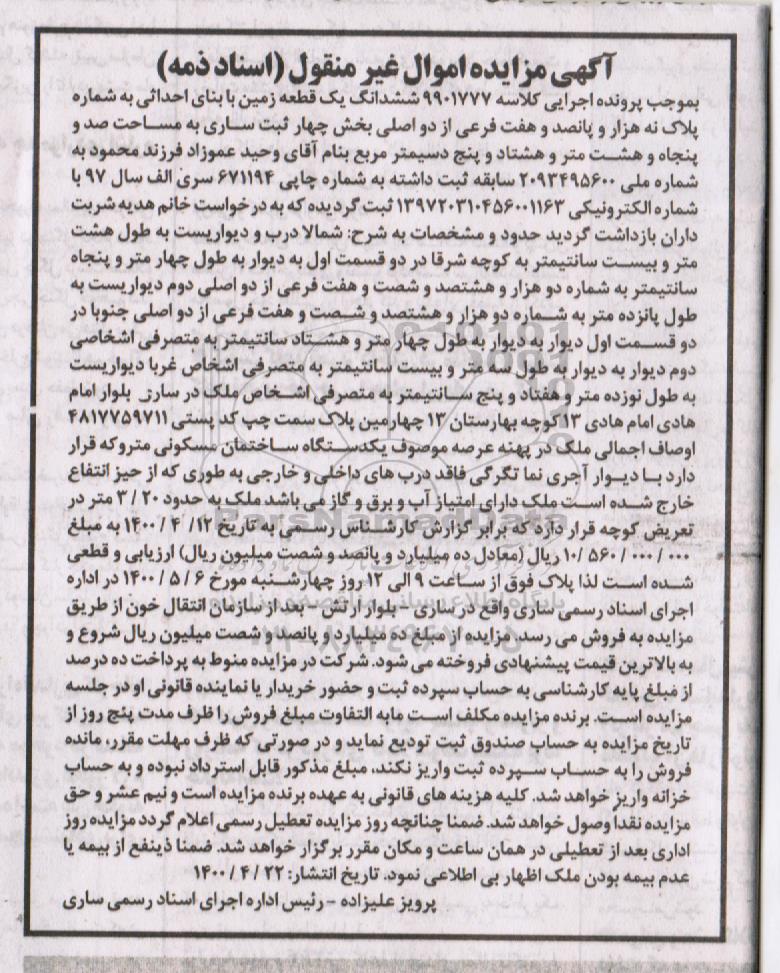 آگهی مزایده اموال غیر منقول (اسناد ذمه)
بموجب پرونده اجرایی کلاسه ۹۹۰۱۷۷۷ ششدانگ یک قطعه زمین با بنای احداثی به شماره
پلاک نه هزار و پانصد و هفت فرعی از دو اصلی بخش چهار ثبت ساری به مساحت صد و
پنجاه و هشت متر و هشتاد و پنج دسیمتر مربع بنام آقای وحید عموزاد فرزند محمود به
شماره ملی ۲۰۹۳۴۹۵۶۰۰ سابقه ثبت داشته به شماره چاپی ۶۷۱۱۹۴ سری الف سال ۹۷ با
شماره الکترونیکی ۱۳۹۷۲۰۳۱۰۴۵۶۰۰۱۱۶۳ ثبت گردیده که به درخواست خانم هدیه شربت
داران بازداشت گردید حدود و مشخصات به شرح: شمالا درب و دیواریست به طول هشت
متر و بیست سانتیمتر به کوچه شرقا در دو قسمت اول به دیوار به طول چهار متر و پنجاه
سانتیمتر به شماره دو هزار و هشتصد و شصت و هفت فرعی از دو اصلی دوم دیواریست به
طول پانزده متر به شماره دو هزار و هشتصد و شصت و هفت فرعی از دو اصلی جنوبا در
دو قسمت اول دیوار به دیوار به طول چهار متر و هشتاد سانتیمتر به متصرفی اشخاصی
دوم دیوار به دیوار به طول سه متر و بیست سانتیمتر به متصرفی اشخاص غربا دیواریست
به طول نوزده متر و هفتاد و پنج سانتیمتر به متصرفی اشخاص ملک در ساری بلوار امام
هادی امام هادی ۱۳ کوچه بهارستان ۱۳ چهارمین پلاک سمت چپ کد پستی ۴۸۱۷۷۵۹۷۱۱
اوصاف اجمالی ملک در پهنه عرصه موصوف یکدستگاه ساختمان مسکونی متروکه قرار
دارد با دیوار آجری نما تگرگی فاقد درب های داخلی و خارجی به طوری که از حیز انتفاع
خارج شده است ملک دارای امتیاز آب و برق و گاز می باشد ملک به حدود ۳/۲۰ متر در
تعریض کوچه قرار دارد که برابر گزارش کارشناس رسمی به تاریخ ۱۲/ ۴ /۱۴۰۰ به مبلغ
۱۰/۵۶۰/۰۰۰/۰۰۰ ریال (معادل ده میلیارد و پانصد و شصت میلیون ریال) ارزیابی و قطعی
شده است لذا پلاک فوق از ساعت ۹ الی ۱۲ روز چهارشنبه مورخ ۶ / ۵ / ۱۴۰۰ در اداره
اجرای اسناد رسمی ساری واقع در ساری - بلوار ارتش - بعد از سازمان انتقال خون از طریق
مزایده به فروش می رسد. مزایده از مبلغ ده میلیارد و پانصد و شصت میلیون ریال شروع و
به بالاترین قیمت پیشنهادی فروخته می شود. شرکت در مزایده منوط به پرداخت ده درصد
از مبلغ پایه کارشناسی به حساب سپرده ثبت و حضور خریدار یا نماینده قانونی او در جلسه
مزایده است. برنده مزایده مکلف است مابه التفاوت مبلغ فروش را ظرف مدت پنج روز از
تاریخ مزایده به حساب صندوق ثبت تودیع نماید و در صورتی که ظرف مهلت مقرر، مانده
فروش را به حساب سپرده ثبت واریز نکند، مبلغ مذکور قابل استرداد نبوده و به حساب
خزانه واریز خواهد شد. کلیه هزینه های قانونی به عهده برنده مزایده است و نیم عشر و حق
مزایده نقداً وصول خواهد شد. ضمنا چنانچه روز مزایده تعطیل رسمی اعلام گردد مزایده روز
اداری بعد از تعطیلی در همان ساعت و مکان مقرر برگزار خواهد شد. ضمنا ذینفع از بیمه یا
عدم بیمه بودن ملک اظهار بی اطلاعی نمود. تاریخ انتشار: ۲۲ / ۴ / ۱۴۰۰
پرویز علیزاده - رئیس اداره اجرای اسناد رسمی ساری